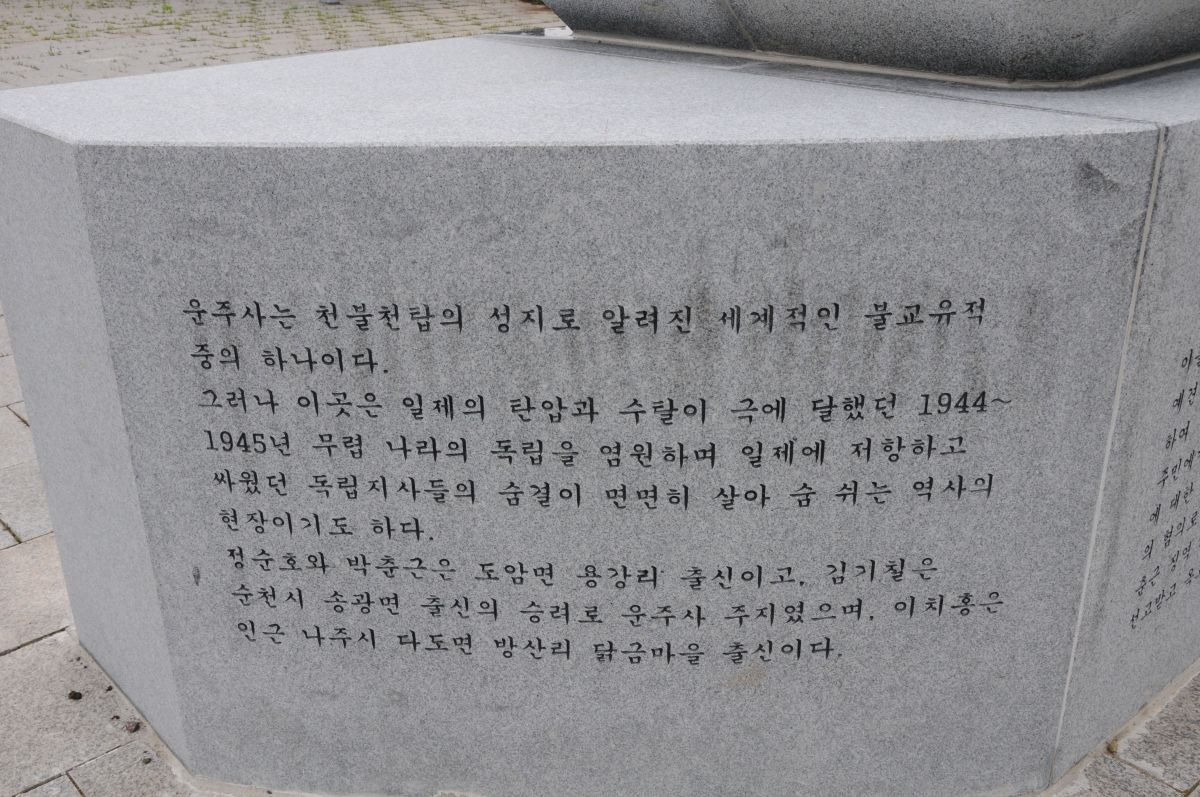 운주사는 천불천탑의 성지로 알려진 세계적인 불교유적
중의 하나이다.
그러나 이곳은 일제의 탄압과 수탈이 극에 달했던 1944~
1945년 무렵 나라의 독립을 염원하며 일제에 저항하고
싸웠던 독립지사들의 숨결이 면면히 살아 숨 쉬는 역사의
현장이기도 하다.
정순호와 박춘근은 도암면 용강리 출신이고, 김기철은
순천시 송광면 출신의 승려로 운주사 주지였으며, 이치홍은
인근 나주시 다도면 방산리 닭금마을 출신이다.
하여
주민에
에 대한
의 혐의로
춘근 징역
선고받고